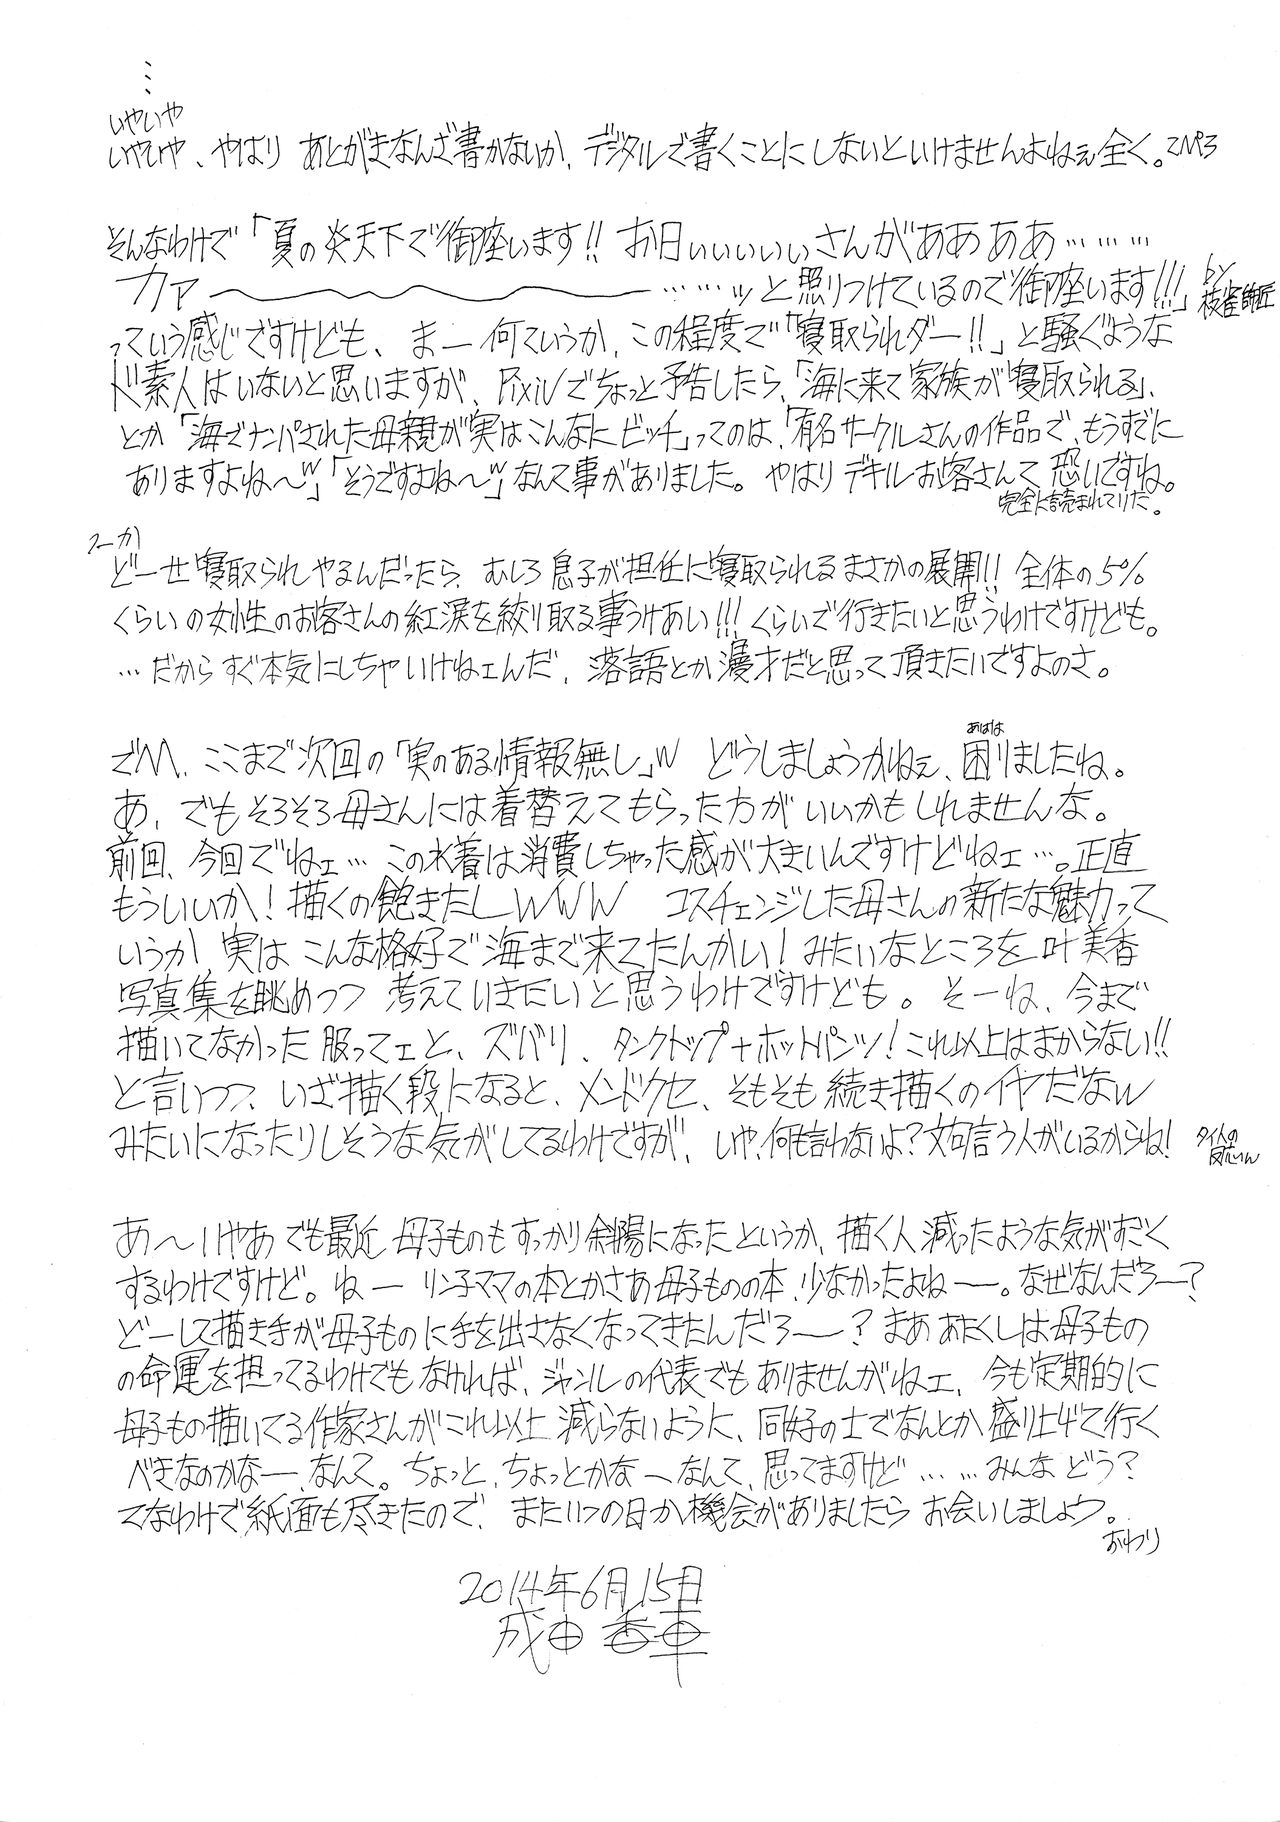 …
いやいや
いやいや、やはり あとがきなんざ書かないか、デジタルで書くことにしないといけませんよねぇ全く。
そんなわけで「夏の炎天下で御座います!! お日ぃぃぃぃぃさんがああああ………
カァ〜〜〜……ッと照りつけているので御座います!!!」by枝雀師匠
っていう感じですけども、まー何ていうか、この程度で「寝取られダー!!」と騒ぐような
ド素人はいないと思いますが、Pixivでちょっと予告したら、「海に来て家族が寝取られる」、
とか「海でナンパされた母親が実はこんなにビッチ」ってのは、「有名サークルさんの作品で、もうすでに
ありますよね〜w」「そうですよね〜w」なんて事がありました。やはりデキルお客さんて恐いですね。
完全に読まれてりだ。
つーか
どーせ寝取られやるんだったら、むしろ息子が担任に寝取られるまさかの展開!! 全体の5%
くらいの女性のお客さんの紅涙を絞り取る事うけあい!!! くらいで行きたいと思うわけですけども。
…だからすぐ本気にしちゃいけねェんだ、落語とか漫才だと思って頂きたいですよのさ。
でM、ここまで次回の「実のある情報無し」w どうしましょうかねぇ、困りましたね。
あはは
あ、でもそろそろ母さんには着替えてもらった方がいいかもしれませんな。
前回、今回でねェ…この水着は消費しちゃった感が大きいんですけどねェ…。正直
もういいか!描くの飽きたしwww コスチェンジした母さんの新たな魅力って
いうか、実はこんな格好で海まで来てたんかい!みたいなところを叶美香
写真集を眺めつつ 考えていきたいと思うわけですけども。そーね、今まで
描いてなかった服ってェと、ズバリ、タンクトップ+ホットパンツ!これ以上はまからない!!
と言いつつ、いざ描く段になると、メンドクセ、そもそも続き描くのイヤだなw
みたいになったりしそうな気がしてるわけですが、いや、何も言わないよ?文句言う人がいるからね!
あ〜いやあでも最近 母子ものもすっかり斜陽になったというか、描く人減ったような気がすごく
するわけですけど。ねーリン子ママの本とかさあ母子ものの本、少なかったよねー。なぜなんだろー?
どーして描き手が母子ものに手を出さなくなってきたんだろー?まああたくしは母子もの
の命運を担ってるわけでもなければ、ジャンルの代表でもありませんがねェ、今も定期的に
母子もの描いてる作家さんがこれ以上減らないように、同好の士でなんとか盛り上げて行く
べきなのかなー、なんて。ちょっと、ちょっとかなーなんて、思ってますけど……みんなどう?
てなわけで紙面も尽きたので、またいつの日か機会がありましたらお会いしましょう。
おわり
2014年6月15日
成田香車